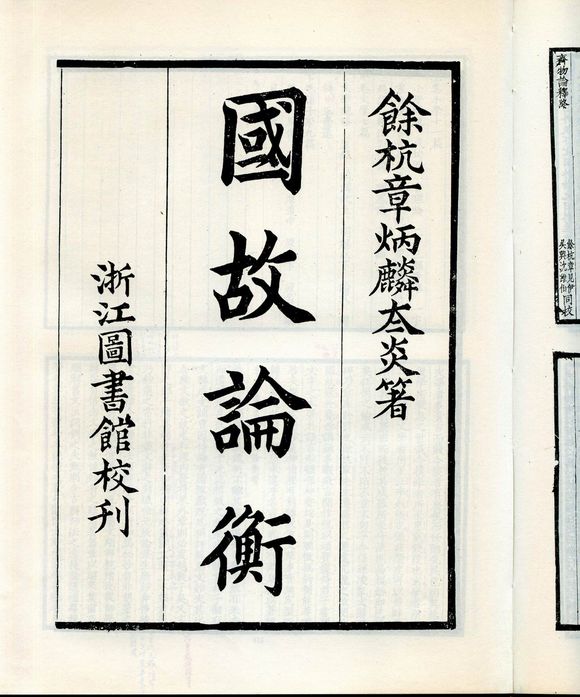 餘杭章炳麟太炎箸
國故論衡
浙江圖書館校刋
齊物論釋終
餘杭章㠭伊同校
吳興沈維伯